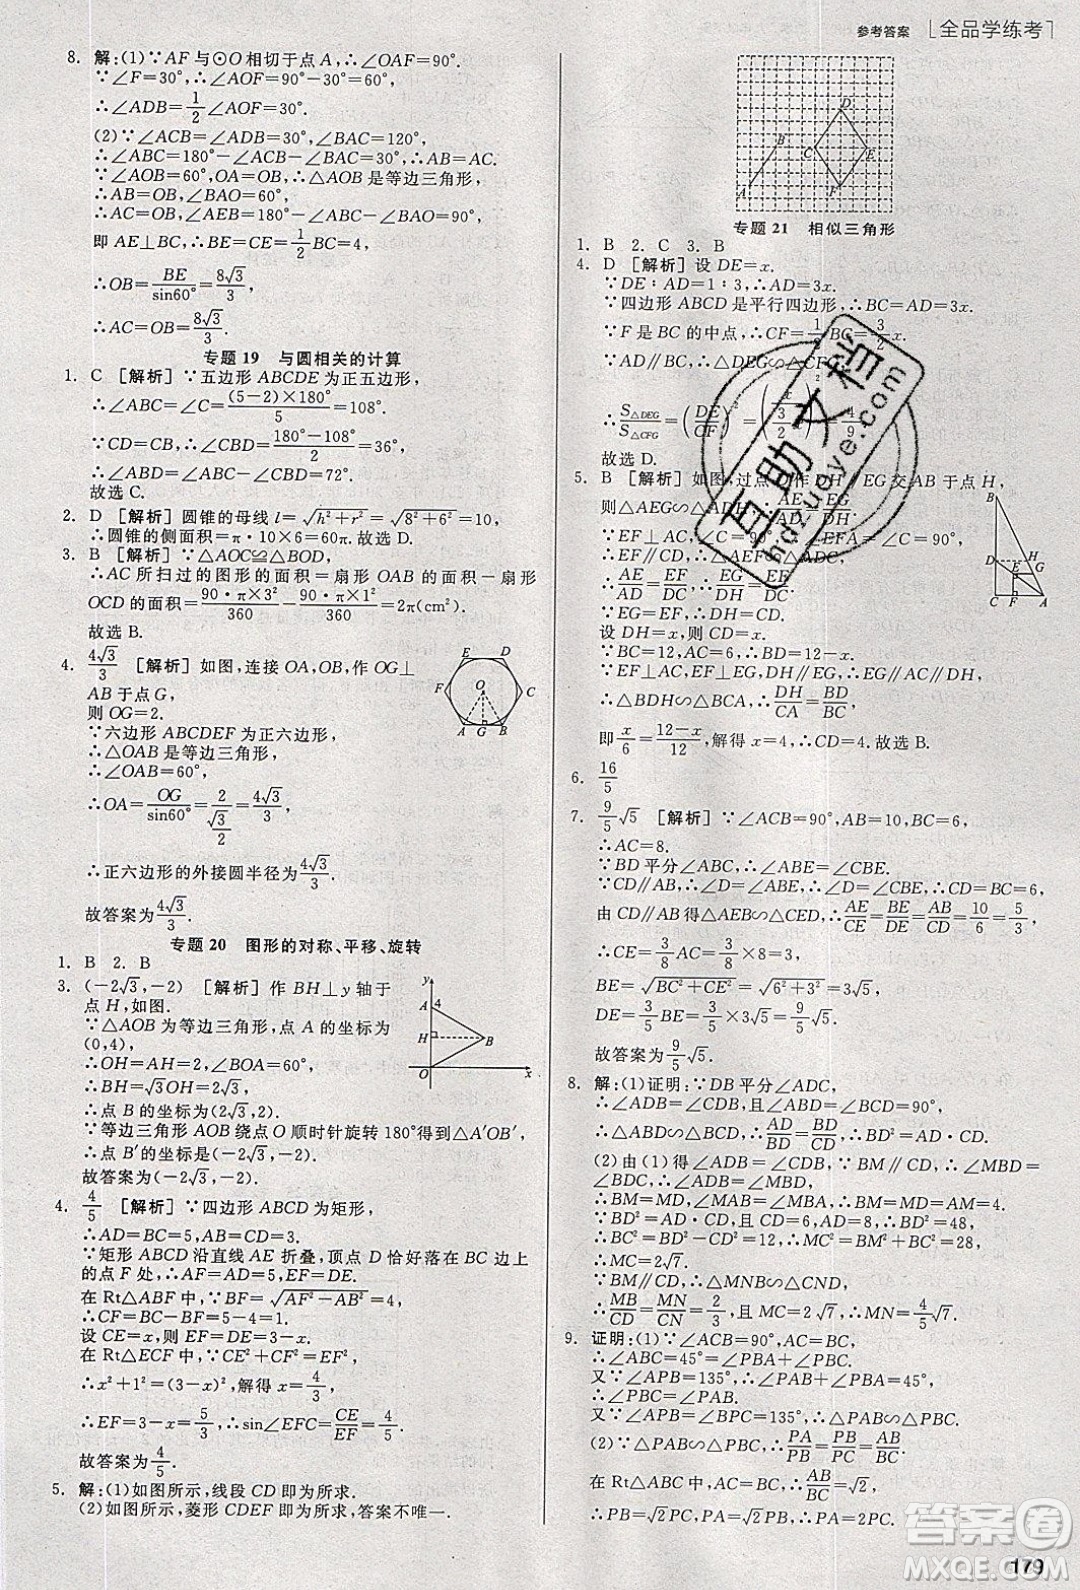 参考答案 [全品学练考]
8. 解:(1)∵AF与⊙O相切于点A,∴∠OAF=90°.
∵∠F=30°,∴∠AOF=60°.
∴∠ADB=1/2∠AOF=30°.
(2)∵∠ACB=∠ADB=30°,∠BAC=120°,
∴∠ABC=180°-∠BAC-∠ACB=30°.∴AB=AC.
∵∠AOB=60°,OA=OB,∴△AOB是等边三角形,
∴AB=OB,∠BAO=60°,
∴AC=OB,∠AEB=180°-∠BAO-∠ABC=90°,
即AE⊥BC,∴BE=CE=1/2BC=4,
∴OB=BE/sin60°=8√3/3,
∴AC=OB=8√3/3.
专题 19 与圆相关的计算
1. C [解析]∵五边形ABCDE为正五边形,
∴∠ABC=∠C=(5-2)×180°/5=108°.
∵CD=CB,∴∠CBD=(180°-108°)/2=36°,
∴∠ABD=∠ABC-∠CBD=72°.
故选C.
2. D [解析]圆锥的母线l=√(h²+r²)=√(8²+6²)=10,
∴圆锥的侧面积=π·10×6=60π.故选D.
3. B [解析]∵△AOC≌△BOD,
∴AC所扫过的图形的面积=扇形OAB的面积-扇形
OCD的面积=90·π×3²/360-90·π×1²/360=2π(cm²).
故选B.
4. 4√3/3 [解析]如图,连接OA,OB,作OG⊥
AB于点G,
则OG=2.
∵六边形ABCDEF为正六边形,
∴△OAB是等边三角形,
∴∠OAB=60°,
∴OA=OG/sin60°=2/(√3/2)=4√3/3,
∴正六边形的外接圆半径为4√3/3.
故答案为4√3/3.
E D
F C
A G B
O
专题 20 图形的对称、平移、旋转
1. B 2. B
3. (-2√3,-2) [解析]作BH⊥y轴于
点H,如图.
∵△AOB为等边三角形,点A的坐标为
(0,4),
∴OH=AH=2,∠BOA=60°,
∴BH=√3OH=2√3,
∴点B的坐标为(2√3,2).
∵等边三角形AOB绕点O顺时针旋转180°得到△A′OB′,
∴点B′的坐标是(-2√3,-2).
故答案为(-2√3,-2).
y
A 4
H B
O x
4. 4/5 [解析]∵四边形ABCD为矩形,
∴AD=BC=5,AB=CD=3.
∵矩形ABCD沿直线AE折叠,顶点D恰好落在BC边上
的点F处,∴AF=AD=5,EF=DE.
在Rt△ABF中,∵BF=√(AF²-AB²)=4,
∴CF=BC-BF=5-4=1.
设CE=x,则DE=EF=3-x.
在Rt△ECF中,∵CE²+FC²=EF²,
∴x²+1²=(3-x)²,解得x=4/3,
∴EF=3-x=5/3,∴sin∠EFC=CE/EF=4/5.
故答案为4/5.
5. 解:(1)如图所示,线段CD即为所求.
(2)如图所示,菱形CDEF即为所求,答案不唯一.
D
B
C E
A F
专题 21 相似三角形
1. B 2. C 3. B
4. D [解析]设DE=x.
∵DE∶AD=1∶3,∴AD=3x.
∵四边形ABCD是平行四边形,∴BC=AD=3x.
∵F是BC的中点,∴CF=1/2BC=3/2x.
∵AD∥BC,∴△DEG∽△CFG,
∴S△DEG/S△CFG=(DE/CF)²=(x/(3/2x))²=4/9.
故选D.
5. B [解析]如图,过点D作DH∥EG交AB于点H,
则△AEG∽△ADH,
∵EF⊥AC,∠C=90°,∴∠EFA=∠C=90°,
∴AE/AD=EF/DC,∴EG/DH=EF/DC.
∵EG=EF,∴DH=CD.
设DH=x,则CD=x.
∵BC=12,AC=6,∴BD=12-x.
∵EF⊥AC,EF⊥EG,DH∥EG,∴EG∥AC∥DH,
∴△BDH∽△BCA,∴DH/CA=BD/BC,
即x/6=(12-x)/12,解得x=4,∴CD=4.故选B.
B
D H
E G
C F A
6. 16/5
7. 9/5√5 [解析]∵∠ACB=90°,AB=10,BC=6,
∴AC=8.
∵BD平分∠ABC,∴∠ABE=∠CBE.
∵CD∥AB,∴∠D=∠ABE,∴∠D=∠CBE,∴CD=BC=6.
由CD∥AB得△AEB∽△CED,∴AE/CE=BE/DE=AB/CD=10/6=5/3,
∴CE=3/8AC=3/8×8=3,
BE=√(BC²+CE²)=√(6²+3²)=3√5,
DE=3/5BE=3/5×3√5=9/5√5.
故答案为9/5√5.
8. 解:(1)证明:∵DB平分∠ADC,
∴∠ADB=∠CDB,且∠ABD=∠BCD=90°,
∴△ABD∽△BCD,∴AD/BD=BD/CD,∴BD²=AD·CD.
(2)由(1)得∠ADB=∠CDB,∠MBD=∠BDC,
∴∠ADB=∠MBD,且∠ABD=90°,
∴BM=MD,∠MAB=∠MBA,∴BM=MD=AM=4.
∵BD²=AD·CD,且CD=6,AD=8,∴BD²=48,
∴BC²=BD²-CD²=12,∴MC²=MB²+BC²=28,
∴MC=2√7.
∵BM∥CD,∴△MNB∽△CND,
∴MB/CD=MN/CN=2/3,且MC=2√7,∴MN=4/5√7.
9. 证明:(1)∵∠ACB=90°,AC=BC,
∴∠ABC=45°=∠PBA+∠PBC.
又∵∠APB=135°,∴∠PAB+∠PBA=45°,
∴∠PBC=∠PAB.
又∵∠APB=∠BPC=135°,∴△PAB∽△PBC.
(2)∵△PAB∽△PBC,∴PA/PB=PB/PC=AB/BC.
在Rt△ABC中,AC=BC,∴AB/BC=√2,
∴PB=√2PC,PA=√2PB,∴PA=2PC.
互助文档
hdzuoye.com
答案圈
MXQE.COM
179